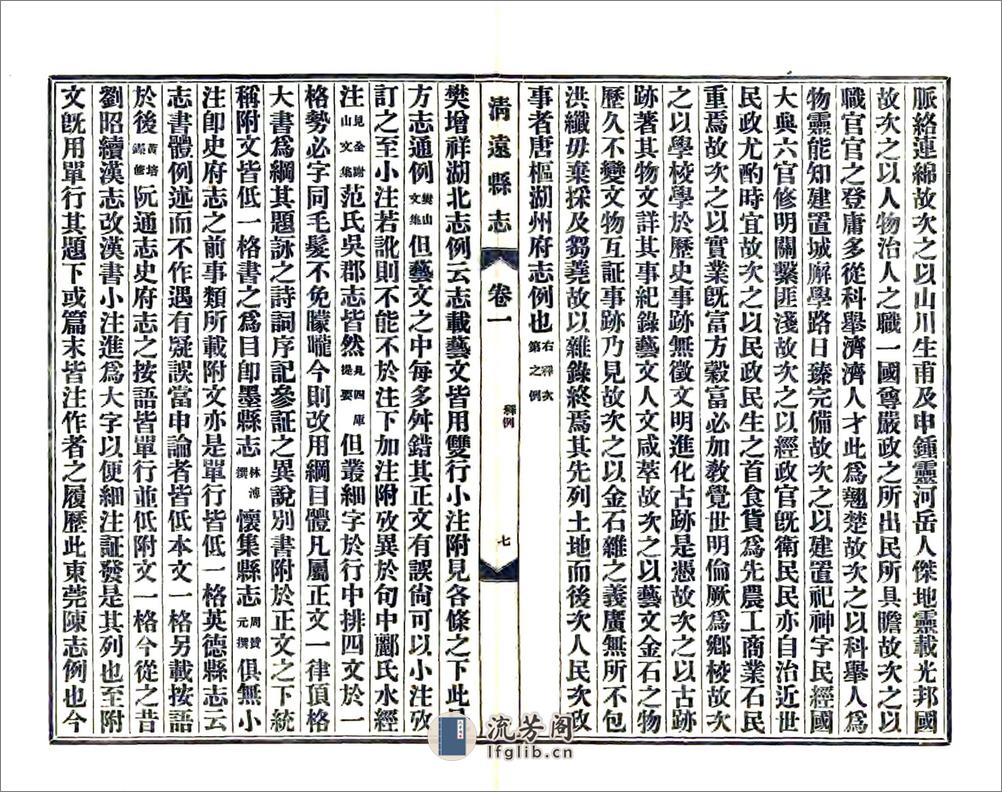 脈絡連綿故次之以山川生甫及申鍾靈河岳人傑地靈載光邦國
故次之以人物治人之職一國尊嚴政之所出民所具瞻故次之以
職官官之登庸多從科舉濟濟人才此爲翹楚故次之以科舉人爲
物靈能知建置城廨學路日臻完備故次之以建置祀神字民經國
大典六官修明關繫匪淺故次之以經政官旣衛民民亦自治近世
民政尤酌時宜故次之以民政民生之首食貨爲先農工商業石民
重焉故次之以實業旣富方穀富必加教覺世明倫厥爲鄉校故次
之以學校學於歷史事跡無徵文明進化古跡是憑故次之以古跡
跡著其物文詳其事紀錄藝文人文咸萃故次之以藝文金石之物
歷久不變文物互証事跡乃見故次之以金石雜之義廣無所不包
洪纖毋棄採及芻蕘故以雜錄終焉其先列土地而後次人民次政
事者唐樞湖州府志例也 右釋次第之例
清遠縣志 卷一 釋例 七
樊增祥湖北志例云志載藝文皆用雙行小注附見各條之下此
方志通例 樊山文集 但藝文之中每多舛錯其正文有誤尙可以小注攷
訂之至小注若訛則不能不於注下加注附攷異於句中酈氏水經
注 見全謝山文集 范氏吳郡志皆然 見四庫提要 但叢細字於行中排四文於一
格勢必字同毛髮不免朦嚨今則改用綱目體凡屬正文一律頂格
大書爲綱其題詠之詩詞序記參証之異說別書附於正文之下統
稱附文皆低一格書之爲目卽墨縣志 林溥撰 懷集縣志 周贊元撰 俱無小
注卽史府志之前事類所載附文亦是單行皆低一格英德縣志云
志書體例述而不作遇有疑誤當申論者皆低本文一格另載按語
於後 黃培𤐣修 阮通志史府志之按語皆單行並低附文一格今從之昔
劉昭續漢志改漢書小注進爲大字以便細注証發是其列也至附
文旣用單行其題下或篇末皆注作者之履歷此東莞陳志例也今
流芳阁
lfglib.cn